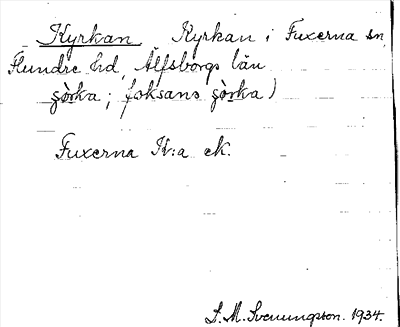 Kyrkan Kyrkan i Fuxerna sn,
Flundre hd, Älfsborgs län
foksans
Fuxerna K:a ek.
S. M. Svenungsson. 1934.